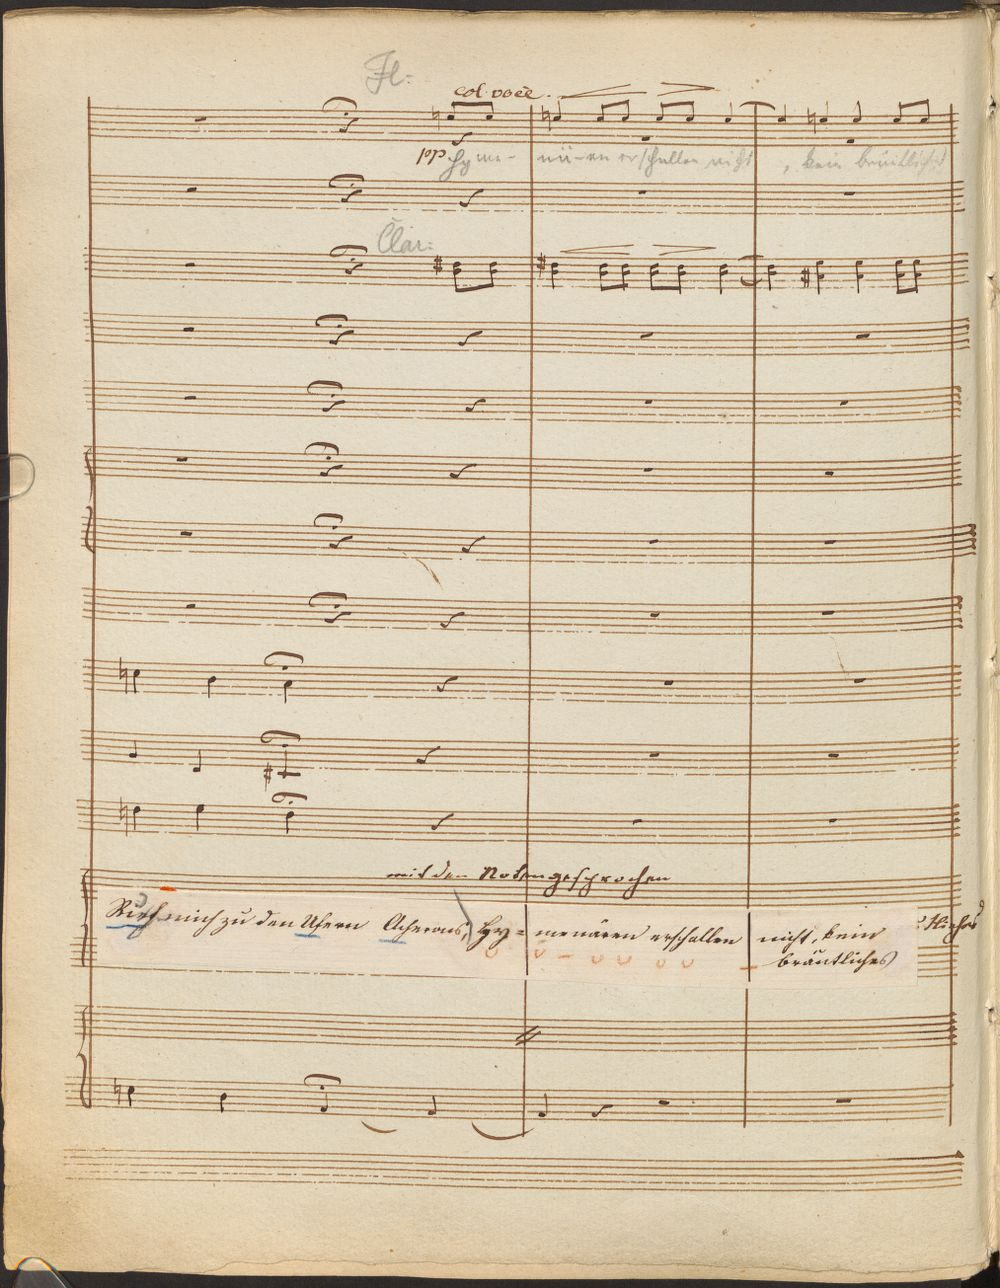 Fl:
col voce.
pp Hyme- nä-en erschallen nicht, kein bräutliches
Clar:
mit den Noten gesprochen
Rief mich zu den Ufern Acherons, Hy= menäen erschallen nicht, kein
bräutliches